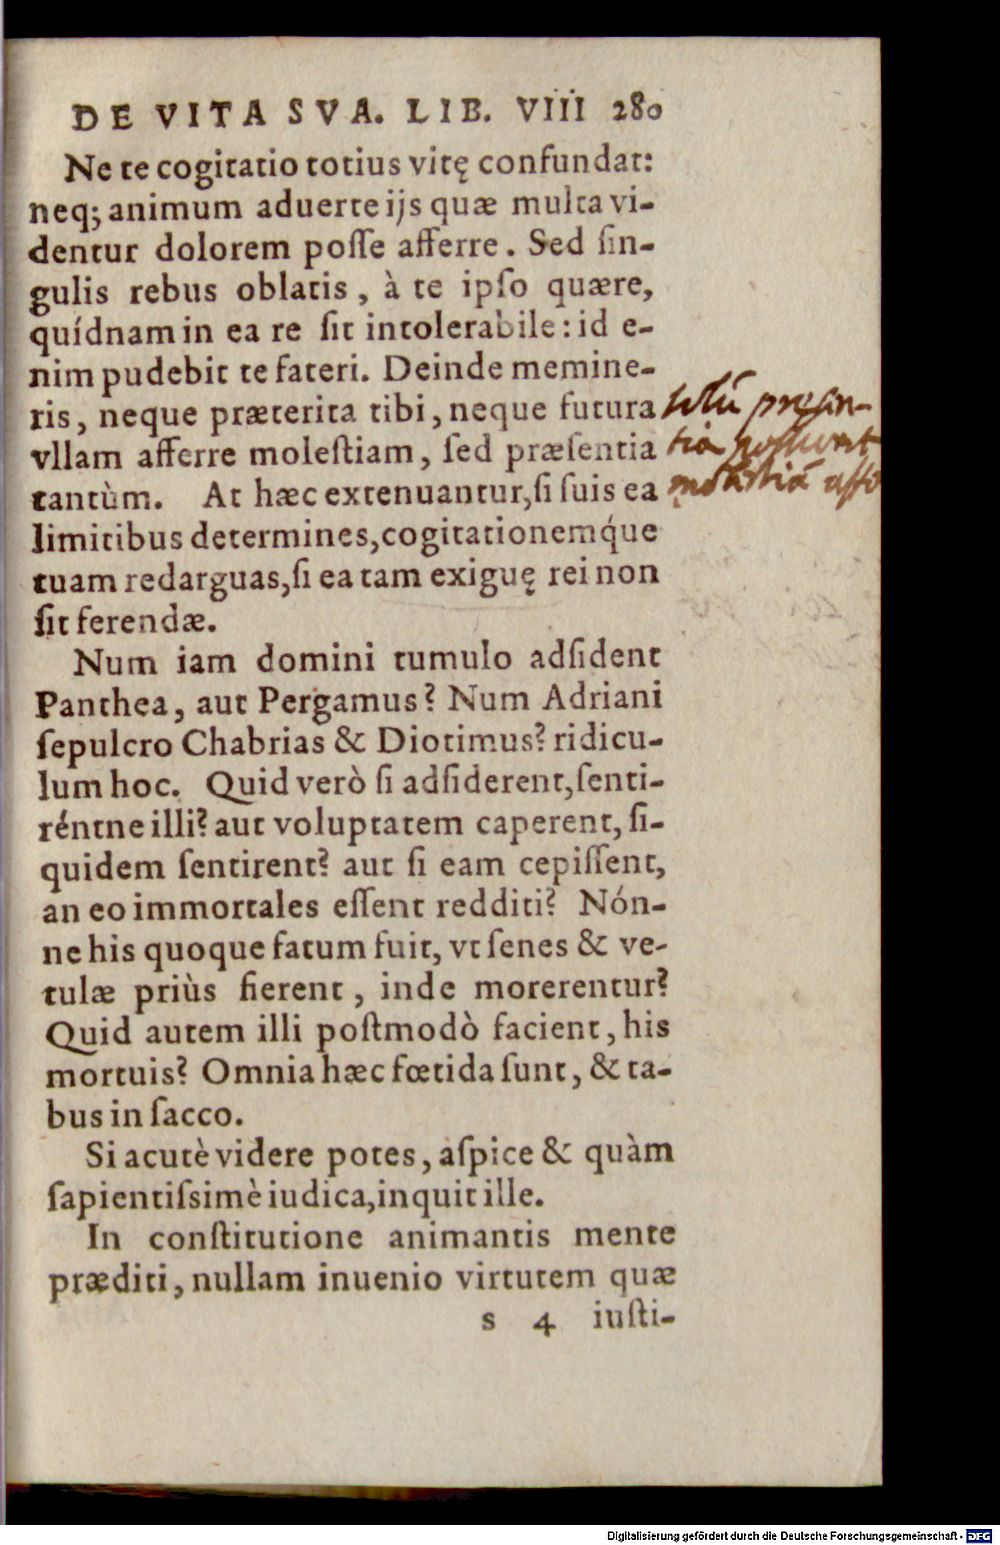 DE VITA SVA. LIB. VIII 280
Ne te cogitatio totius vitę confundat:
neq; animum aduerte ijs quæ multa vi-
dentur dolorem poſſe afferre. Sed ſin-
gulis rebus oblatis, à te ipſo quære,
quídnam in ea re ſit intolerabile: id e-
nim pudebit te fateri. Deinde memine-
ris, neque præterita tibi, neque futura
vllam afferre moleſtiam, ſed præſentia
tantùm. At hæc extenuantur, ſi ſuis ea
limitibus determines, cogitationemq́ue
tuam redarguas, ſi ea tam exiguę rei non
ſit ferendæ.
Num iam domini tumulo adſident
Panthea, aut Pergamus? Num Adriani
ſepulcro Chabrias & Diotimus? ridicu-
lum hoc. Quid verò ſi adſiderent, ſenti-
réntne illi? aut voluptatem caperent, ſi-
quidem ſentirent? aut ſi eam cepiſſent,
an eo immortales eſſent redditi? Nón-
ne his quoque fatum fuit, vt ſenes & ve-
tulæ priùs fierent, inde morerentur?
Quid autem illi poſtmodò facient, his
mortuis? Omnia hæc fœtida ſunt, & ta-
bus in ſacco.
Si acutè videre potes, aſpice & quàm
ſapientiſsimè iudica, inquit ille.
In conſtitutione animantis mente
præditi, nullam inuenio virtutem quæ
s 4 iuſti-
solū presen-
tia possunt
molestiā affe
Digitalisierung gefördert durch die Deutsche Forschungsgemeinschaft - DFG